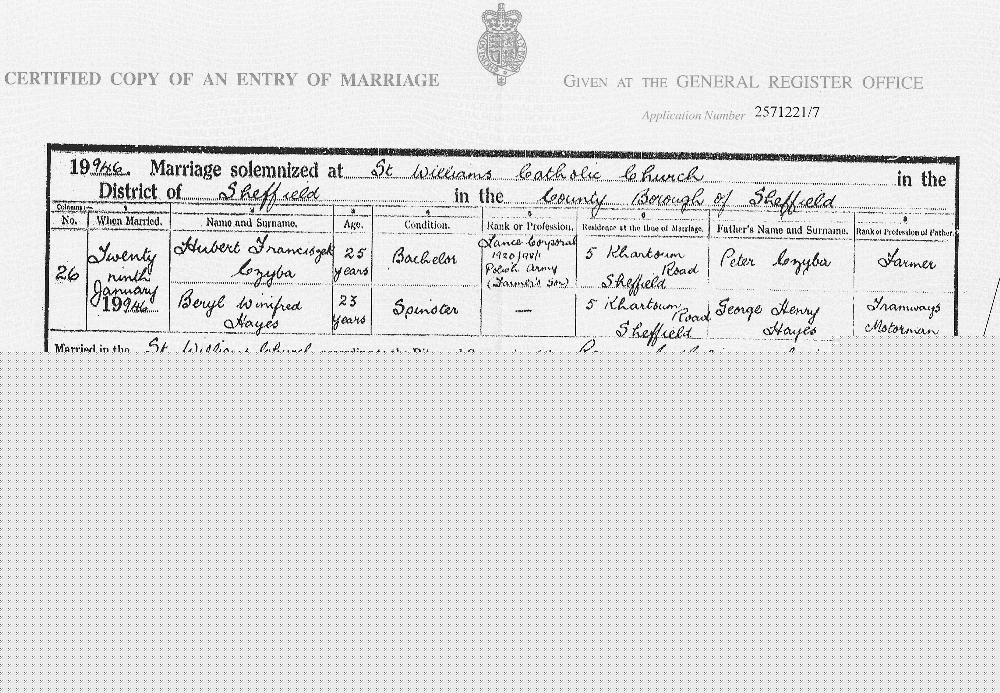 CERTIFIED COPY OF AN ENTRY OF MARRIAGE
GIVEN AT THE GENERAL REGISTER OFFICE
Application Number 2571221/7
1946. Marriage solemnized at St Williams Catholic Church in the
District of Sheffield in the County Borough of Sheffield
Columns:—
No. When Married. Name and Surname. Age. Condition. Rank or Profession. Residence at the time of Marriage. Father's Name and Surname. Rank or Profession of Father
26
Twenty
ninth
January
1946
Hubert Franciszek
Czyba
25
years
Bachelor
Lance Corporal
Polish Army
(Farmer's son)
5 Khartoum
Road
Sheffield
Peter Czyba
Farmer
Beryl Winifred
Hayes
23
years
Spinster
—
5 Khartoum
Road
Sheffield
George Henry
Hayes
Tramways
Motorman
Married in the St. Williams Church according to the